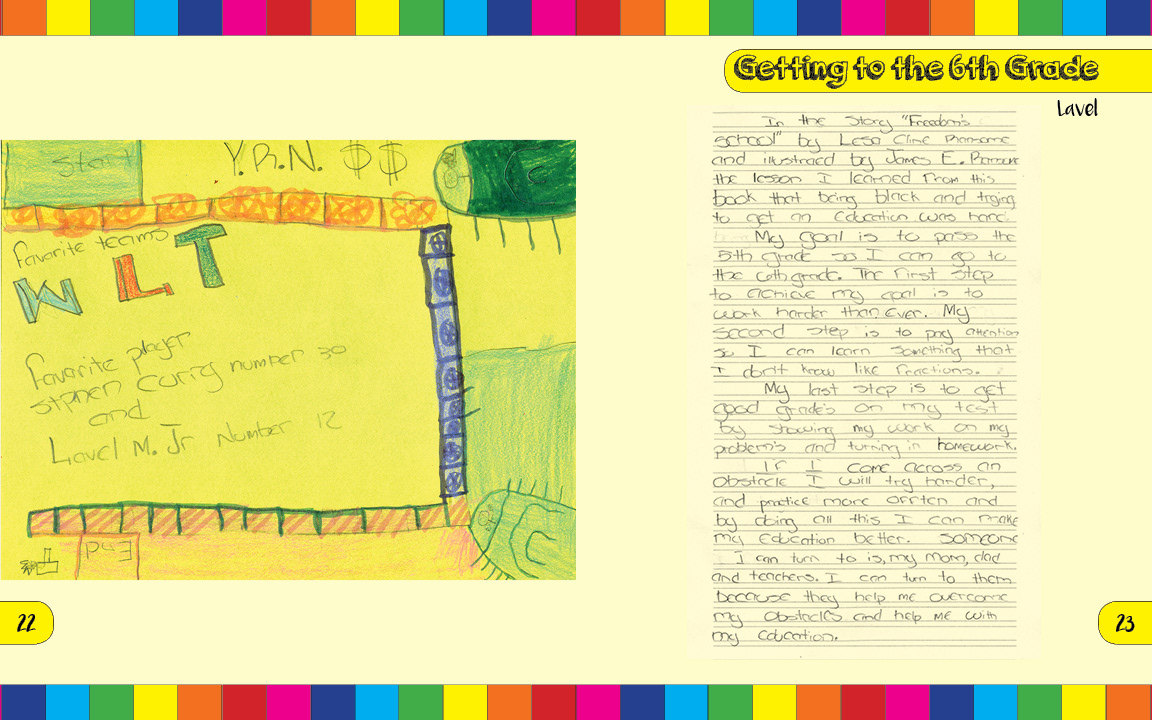 Start
Y.R.N. $$
C
favorite teams
W L T
favorite player
stphen curry number 30
and
Lavel M. Jr Number 12
End
22
Getting to the 6th Grade
Lavel
In the Story "Freedom's
school" by Lesa Cline
and illustraed by James E.
the lesson I learned from this
book that being black and trying
to get an Education was hard.
My goal is to pass the
5th grade so I can go to
the 6th grade. The first step
to achieve my goal is to
work harder than Ever. My
second step is to pay attention
so I can learn something that
I don't know like fractions.
My last step is to get
good grade's on my test
by showing my work on my
problem's and turning in homework.
If I come across an
obstacle I will try harder,
and practice more and
by doing all this I can make
my Education better. Someone
I can turn to is, my mom, dad
and teachers. I can turn to them
because they help me overcome
my obstacles and help me with
my Education.
23